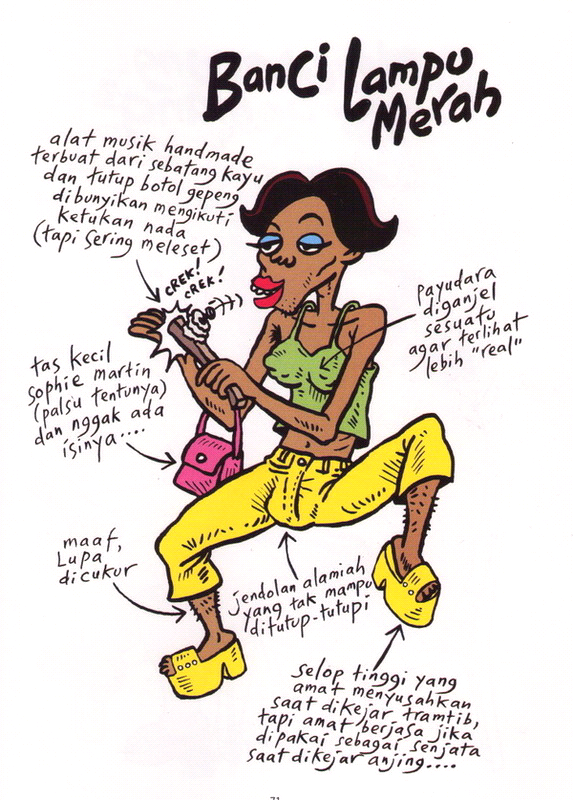 Banci Lampu
Merah
alat musik handmade
terbuat dari sebatang kayu
dan tutup botol gepeng
dibunyikan mengikuti
ketukan nada
(tapi sering meleset)
CREK!
CREK!
payudara
diganjel
sesuatu
agar terlihat
lebih "real"
tas kecil
sophie martin
(palsu tentunya)
dan nggak ada
isinya....
maaf,
Lupa
dicukur
jendolan alamiah
yang tak mampu
ditutup-tutupi
selop tinggi yang
amat menyusahkan
saat dikejar tramtib,
tapi amat berjasa jika
dipakai sebagai senjata
saat dikejar anjing....